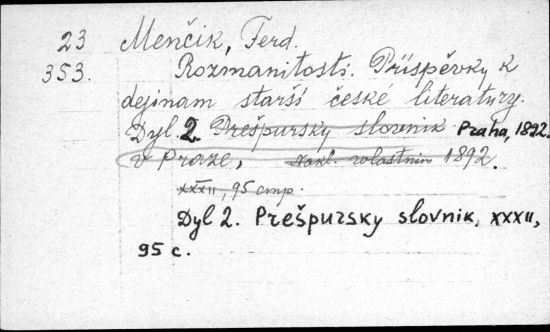 23 Menčik, Ferd.
353. Rozmanitosti. Příspěvky k
dejinam starší české literatury.
Dyl. 2. Prešpursky slovnik Praha, 1892.
v Praze, Nakl. vlastnim 1892.
XXXII, 95 стр.
Dyl 2. Prešpursky slovnik, XXXII,
95 с.